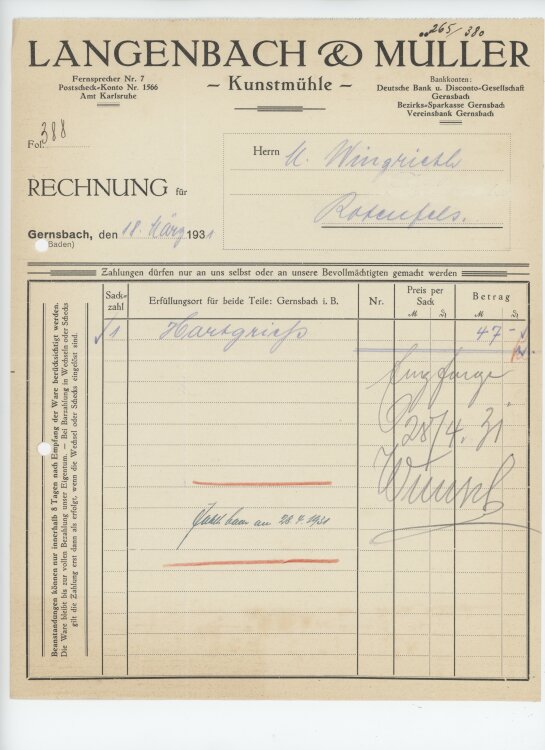 265/380
LANGENBACH & MÜLLER
Fernsprecher Nr. 7
Postscheck-Konto Nr. 1566
Amt Karlsruhe
~ Kunstmühle ~
Bankkonten:
Deutsche Bank u. Disconto-Gesellschaft
Gernsbach
Bezirks-Sparkasse Gernsbach
Vereinsbank Gernsbach
Fol. 388
Herrn
Rotenfels.
RECHNUNG für
Gernsbach, den 18. März 1931
(Baden)
Zahlungen dürfen nur an uns selbst oder an unsere Bevollmächtigten gemacht werden
Beanstandungen können nur innerhalb 8 Tagen nach Empfang der Ware berücksichtigt werden.
Die Ware bleibt bis zur vollen Bezahlung unser Eigentum. — Bei Barzahlung in Wechseln oder Schecks
gilt die Zahlung erst dann als erfolgt, wenn die Wechsel oder Schecks eingelöst sind.
Sack-
zahl
Erfüllungsort für beide Teile: Gernsbach i. B.
Nr.
Preis per
Sack
Betrag
1 Hartgrieß 47 -
28/4. 31
am 28 4 1931